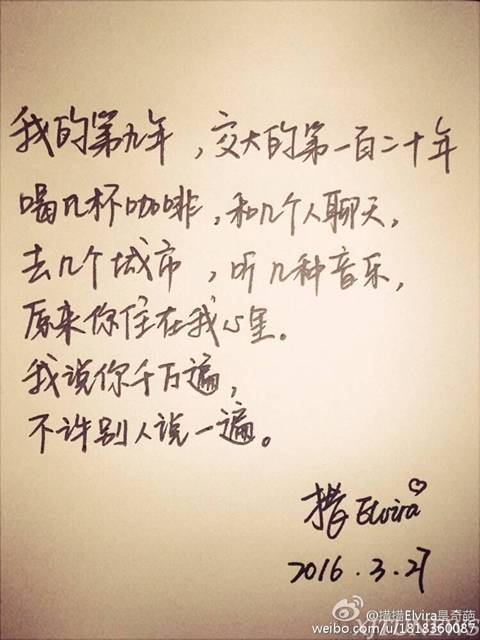 我的第九年，交大的第一百二十年
喝几杯咖啡，和几个人聊天，
去几个城市，听几种音乐，
原来你住在我心里。
我说你千万遍，
不许别人说一遍。
Elvira
2016.3.27
Elvira是奇葩
weibo.com/u/1818360087